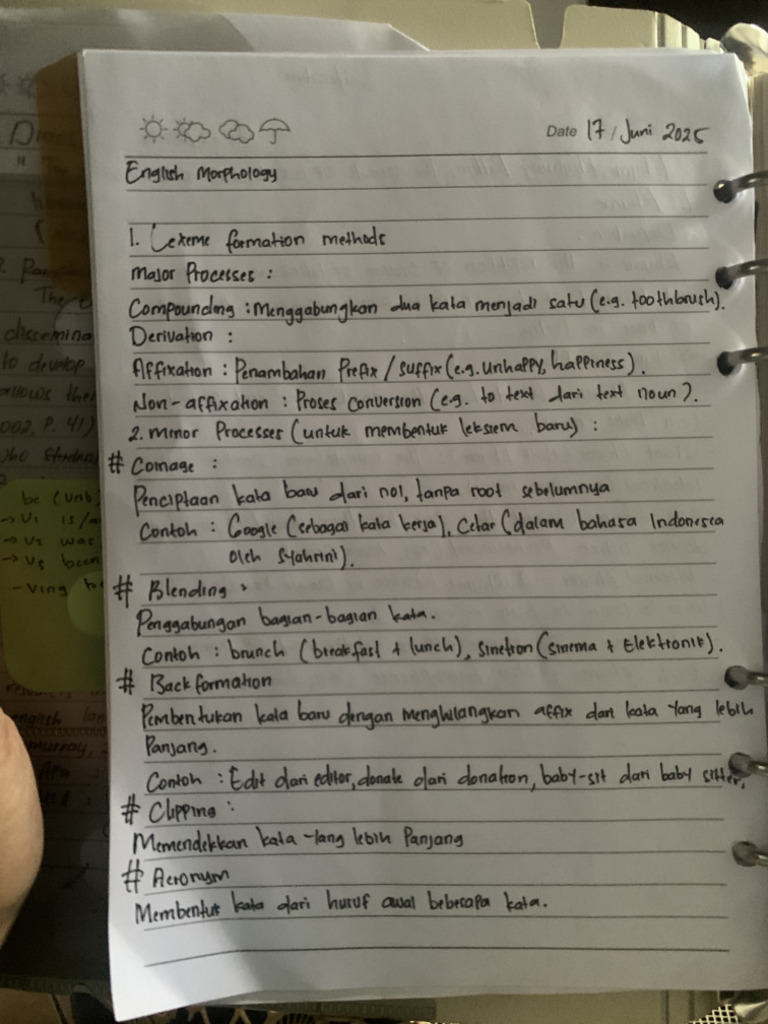 Date 17 / Juni 2025
English Morphology
1. Lexeme formation methods
Major Processes :
Compounding : Menggabungkan dua kata menjadi satu (e.g. toothbrush).
Derivation :
Affixation : Penambahan Prefix / suffix (e.g. unhappy, happiness).
Non-affixation : Proses Conversion (e.g. to text dari text noun).
2. Minor Processes (untuk membentuk leksiem baru) :
# Coinage :
Penciptaan kata baru dari nol, tanpa root sebelumnya
Contoh : Google (sebagai kata kerja), Cetar (dalam bahasa Indonesia
oleh Syahrini).
# Blending :
Penggabungan bagian-bagian kata.
Contoh : brunch (breakfast + lunch), Sinetron (sinema + Elektronik).
# Back formation
Pembentukan kata baru dengan menghilangkan affix dari kata yang lebih
Panjang.
Contoh : Edit dari editor, donate dari donation, baby-sit dari baby sitter.
# Clipping :
Memendekkan kata yang lebih Panjang
# Acronym
Membentuk kata dari huruf awal beberapa kata.
disemina
to develop
allows the
002, P. 41)
be (Verb
→ V1 is/a
→ V2 was
→ V3 been
- Ving be
english
murray,